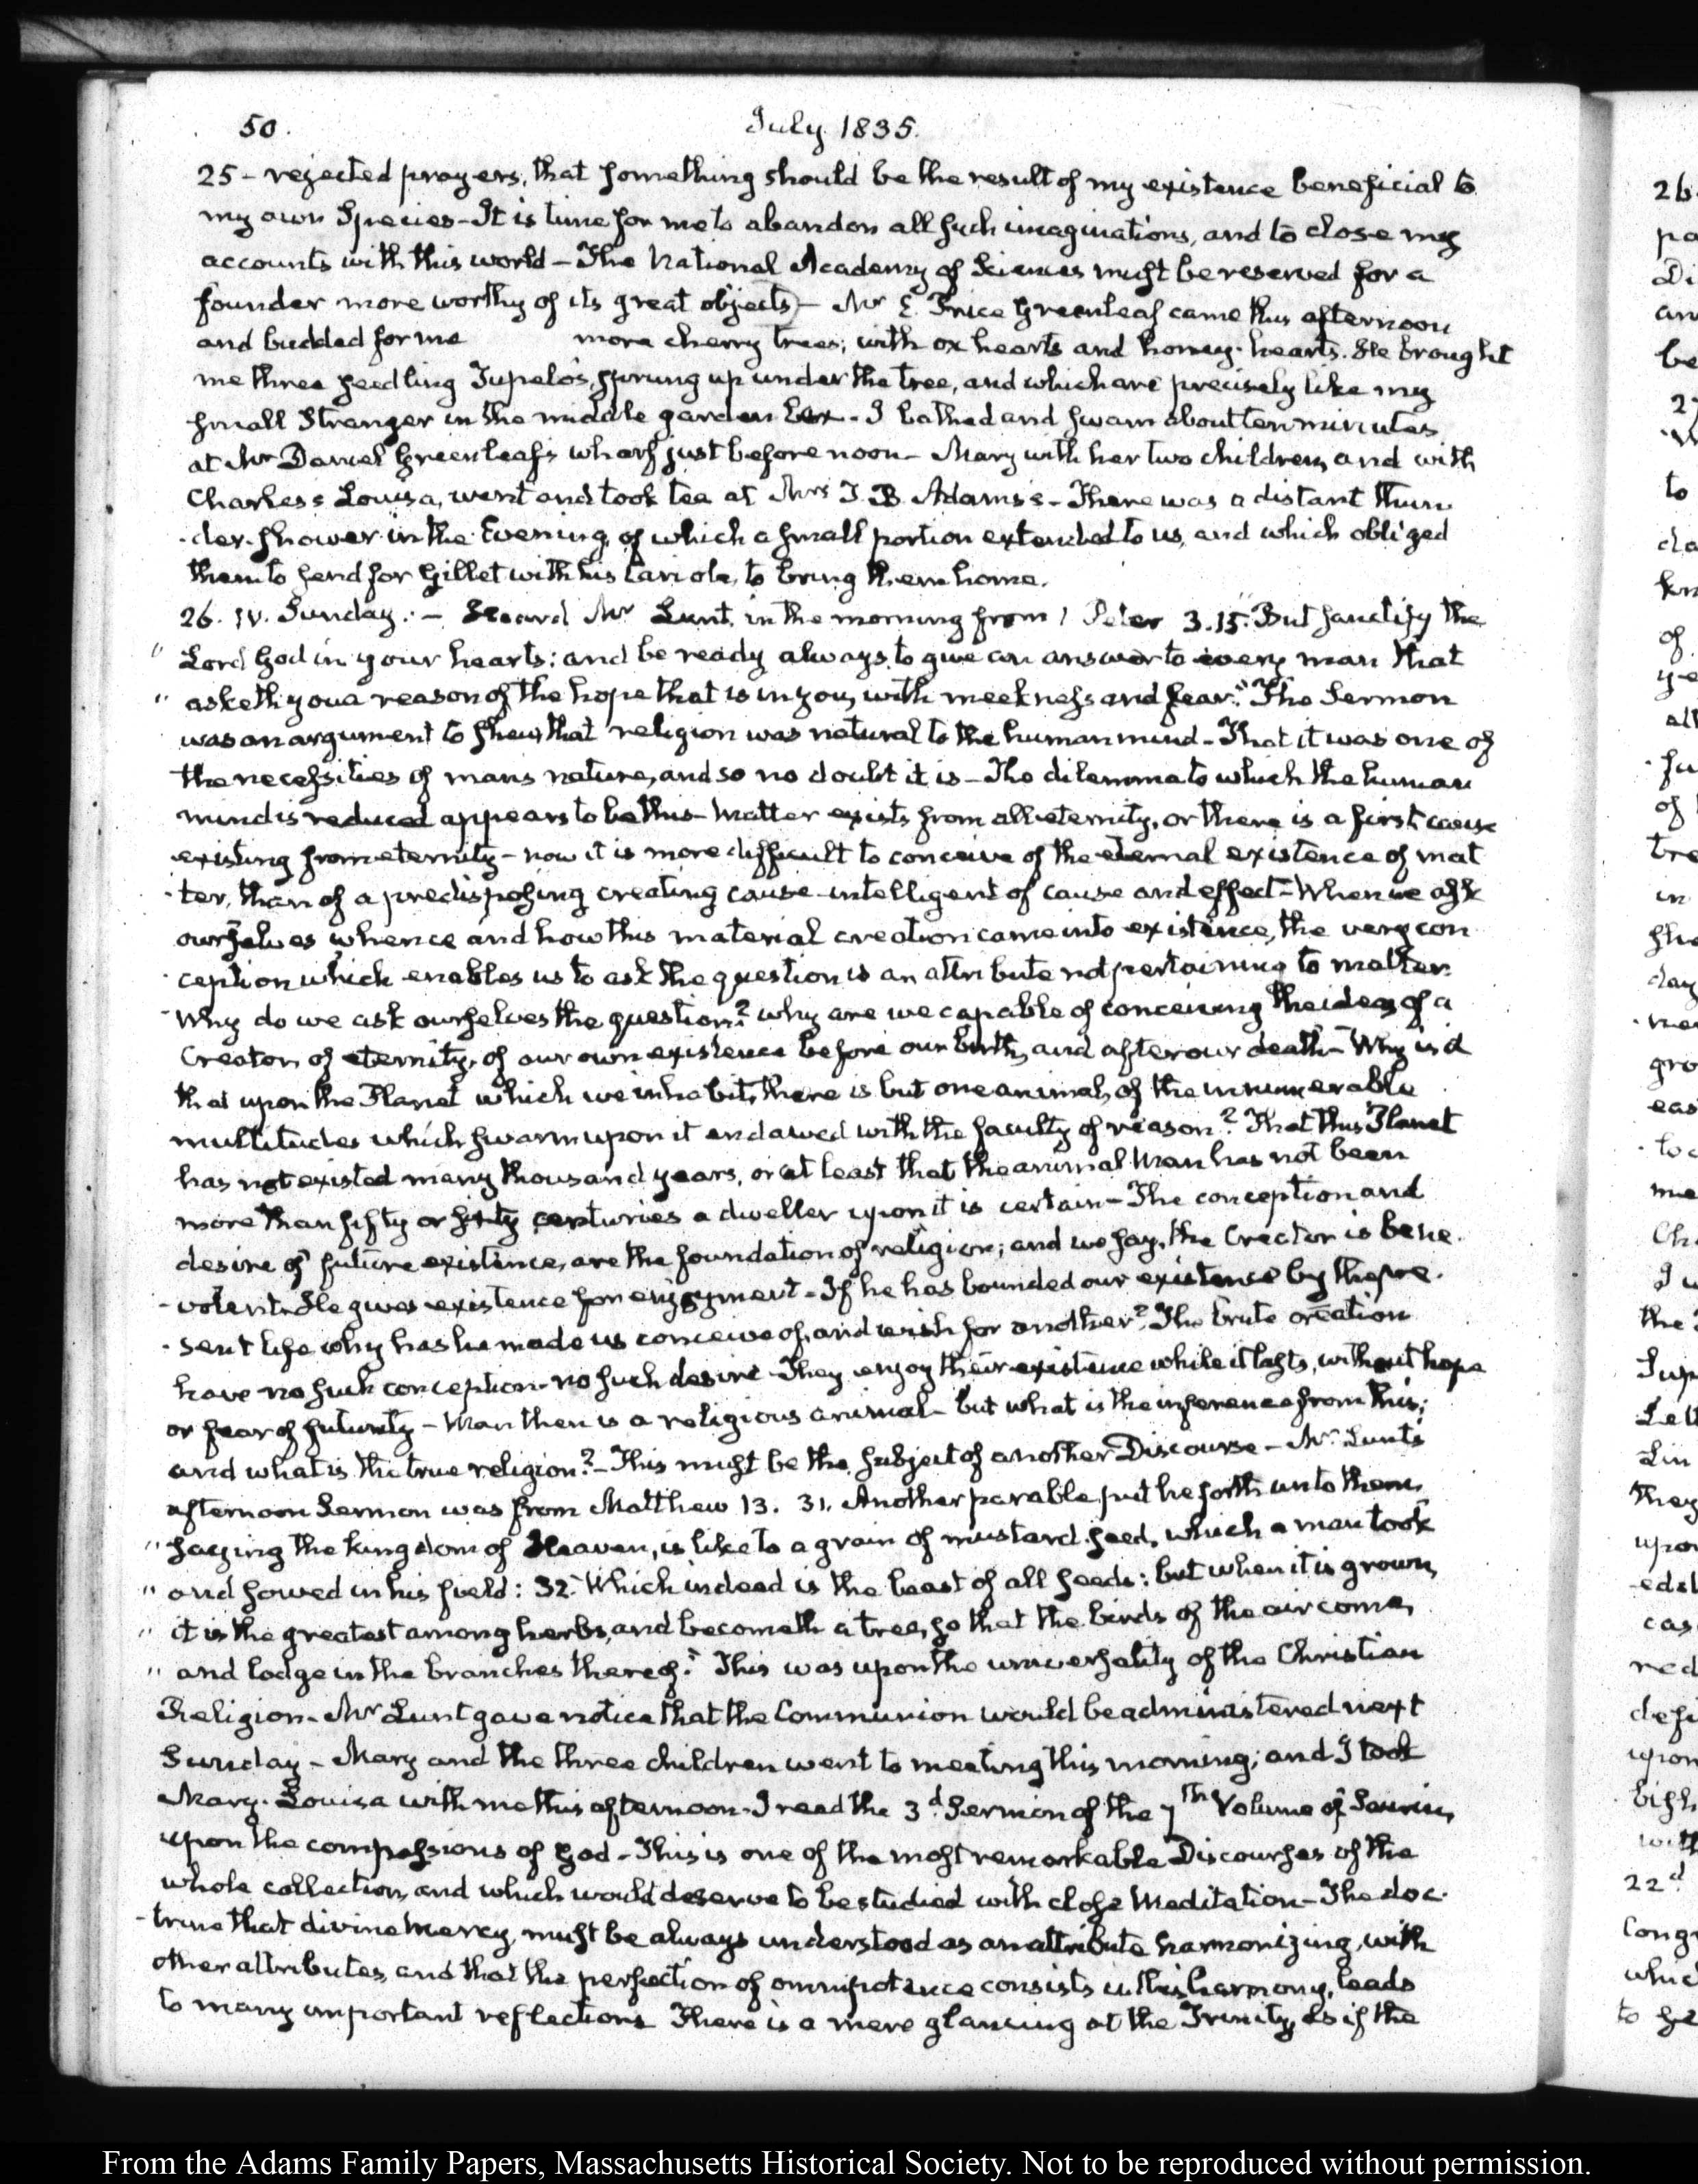 50.
July 1835.
25 - rejected prayers, that something should be the result of my existence beneficial to
my own Species - It is time for me to abandon all such imaginations, and to close my
accounts with this world - The National Academy of Sciences must be reserved for a
founder more worthy of its great objects) - Mr E. Price Greenleaf came this afternoon
and budded for me more cherry trees; with ox hearts and honey-hearts. He brought
me three seedling Tupelo's, sprung up under the tree, and which are precisely like my
small Stranger in the middle garden - I bathed and swam about ten minutes
at Mr Daniel Greenleaf's wharf just before noon - Mary with her two children, and with
Charles's Louisa, went and took tea at Mrs T. B. Adams's - There was a distant thun-
-der-shower in the Evening, of which a small portion extended to us, and which obliged
them to send for Gillet with his Cariole, to bring them home.
26. IV. Sunday. - Heard Mr Lunt, in the morning from 1 Peter 3.15. "But sanctify the
" Lord God in your hearts: and be ready always to give an answer to every man that
" asketh you a reason of the hope that is in you, with meekness and fear." The Sermon
was an argument to shew, that religion was natural to the human mind - That it was one of
the necessities of mans nature, and so no doubt it is - The dilemma to which the human
mind is reduced appears to be this - Matter exists from all eternity, or there is a first cause
existing from eternity - now it is more difficult to conceive of the eternal existence of mat
-ter, than of a predisposing creating cause intelligent of cause and effect - When we ask
ourselves whence and how this material creation came into existence, the very con
-ception which enables us to ask the question is an attribute not pertaining to matter.
Why do we ask ourselves the question? why are we capable of conceiving the idea of a
Creator, of eternity, of our own existence before our birth, and after our death - Why is it
that upon the Planet which we inhabit, there is but one animal, of the innumerable
multitudes which swarm upon it endowed with the faculty of reason? That this Planet
has not existed many thousand years, or at least that the animal Man has not been
more than fifty or sixty centuries a dweller upon it is certain - The conception and
desire of future existence, are the foundation of religion; and we say, the Creator is bene-
-volent. He gives existence for enjoyment - If he has bounded our existence by the pre-
-sent life why has he made us conceive of, and wish for another? The brute creation
have no such conception - no such desire - They enjoy their existence while it lasts, without hope
or fear of futurity - Man then is a religious animal - but what is the inference from this;
and what is the true religion? - This must be the subject of another Discourse - Mr Lunt's
afternoon Sermon was from Matthew 13. 31. Another parable put he forth unto them,
" saying the kingdom of Heaven, is like to a grain of mustard seed, which a man took
" and sowed in his field: 32. Which indeed is the least of all seeds: but when it is grown,
" it is the greatest among herbs, and becometh a tree, so that the birds of the air come,
" and lodge in the branches thereof." This was upon the universality of the Christian
Religion - Mr Lunt gave notice that the Communion would be administered next
Sunday - Mary and the three children went to meeting this morning; and I took
Mary-Louisa with me this afternoon - I read the 3d Sermon of the 7th Volume of Saurin,
upon the compassions of God - This is one of the most remarkable Discourses of the
whole collection, and which would deserve to be studied with close Meditation - The doc-
-trine that divine Mercy, must be always understood as an attribute harmonizing, with
other attributes, and that the perfection of omnipotence consists in this harmony, leads
to many important reflections There is a mere glancing at the Trinity, as if the
From the Adams Family Papers, Massachusetts Historical Society. Not to be reproduced without permission.